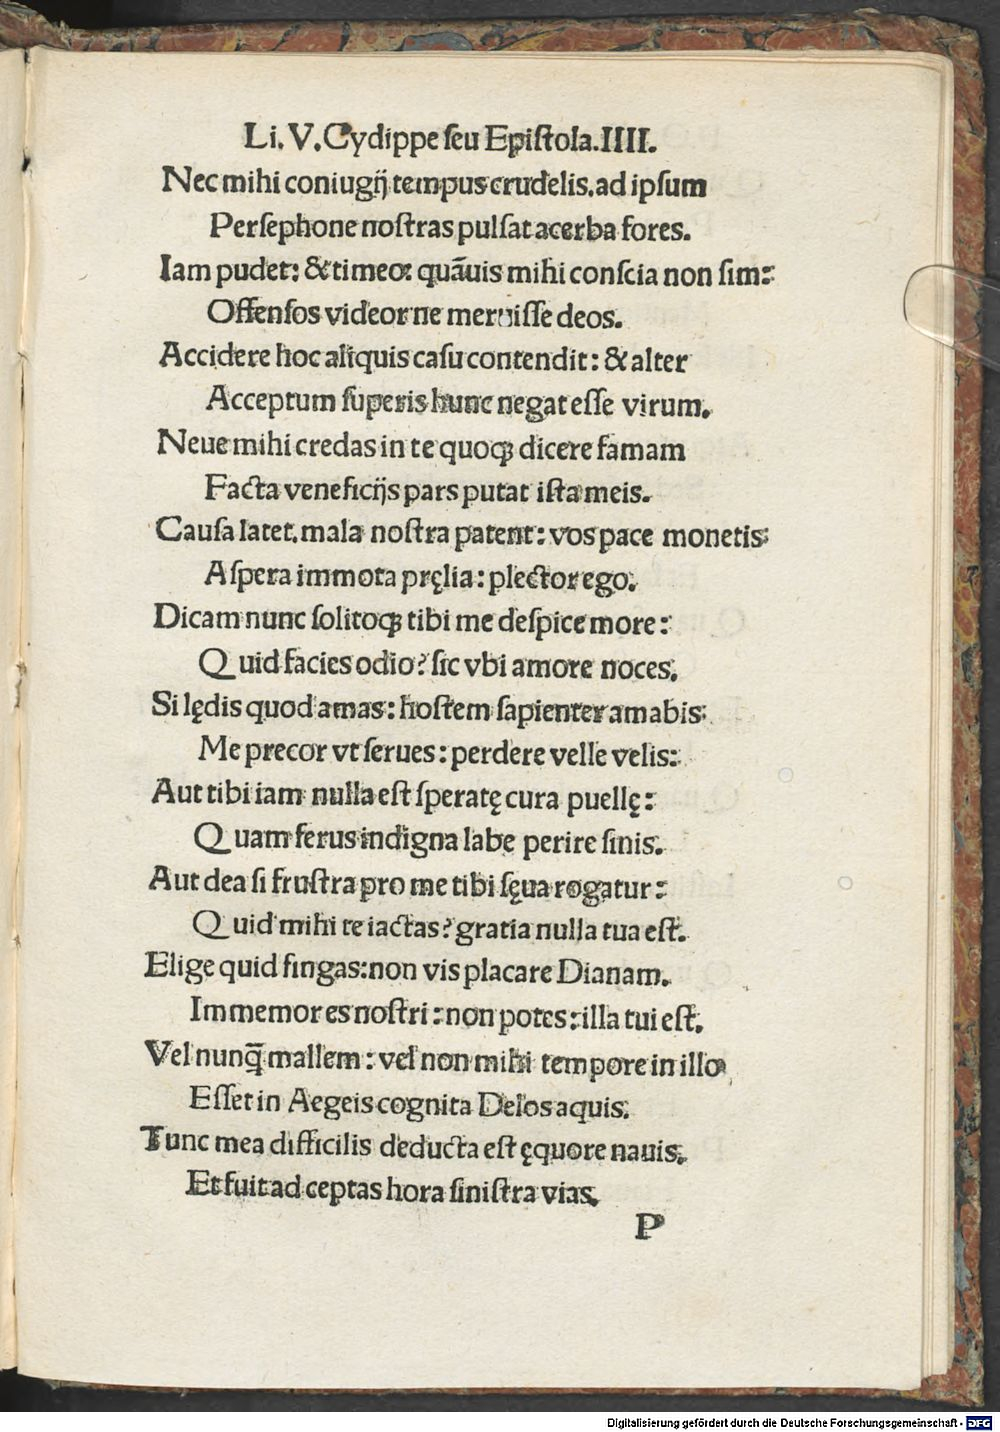 Li. V. Cydippe seu Epistola. IIII.
Nec mihi coniugij tempus crudelis. ad ipsum
Persephone nostras pulsat acerba fores.
Iam pudet: & timeo: quãuis mihi conscia non sim:
Offensos videor ne meruisse deos.
Accidere hoc aliquis casu contendit: & alter
Acceptum superis hunc negat esse virum.
Neue mihi credas in te quoqꝫ dicere famam
Facta veneficijs pars putat ista meis.
Causa latet. mala nostra patent: vos pace monetis:
Aspera immota pręlia: plector ego.
Dicam nunc solitoqꝫ tibi me despice more:
Quid facies odio? sic vbi amore noces.
Si lędis quod amas: hostem sapienter amabis:
Me precor vt serues: perdere velle velis:
Aut tibi iam nulla est speratę cura puellę:
Quam ferus indigna labe perire sinis.
Aut dea si frustra pro me tibi sęua rogatur:
Quid mihi te iactas? gratia nulla tua est.
Elige quid fingas: non vis placare Dianam.
Immemor es nostri: non potes: illa tui est.
Vel nunq̃ mallem: vel non mihi tempore in illo
Esset in Aegeis cognita Delos aquis.
Tunc mea difficilis deducta est ęquore nauis.
Et fuit ad ceptas hora sinistra vias.
P
Digitalisierung gefördert durch die Deutsche Forschungsgemeinschaft - DFG